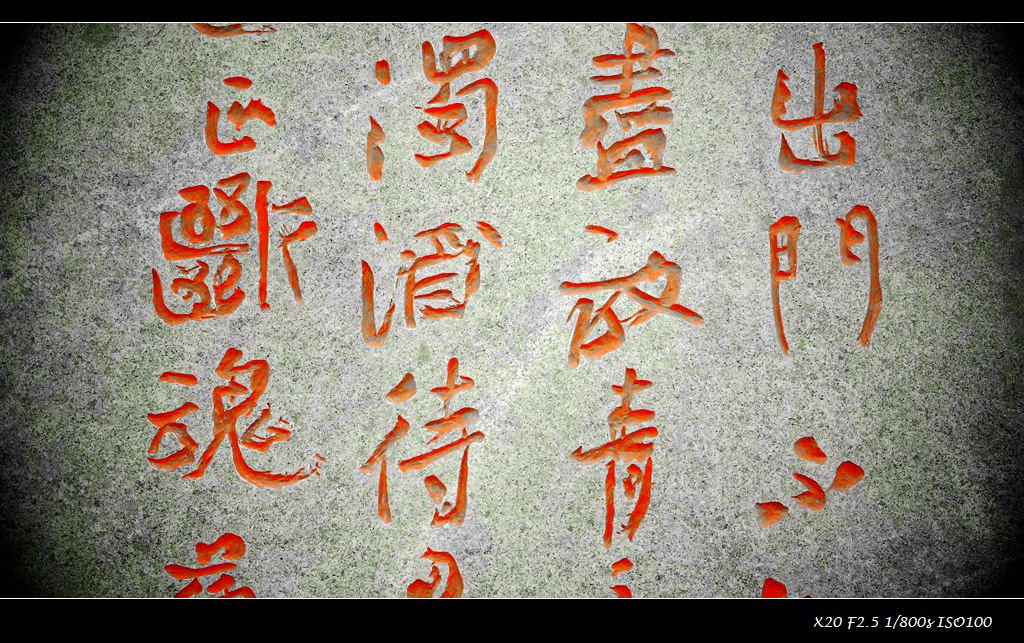 出門不
盡夜青
濁酒待
斷魂
X20 F2.5 1/800s ISO100